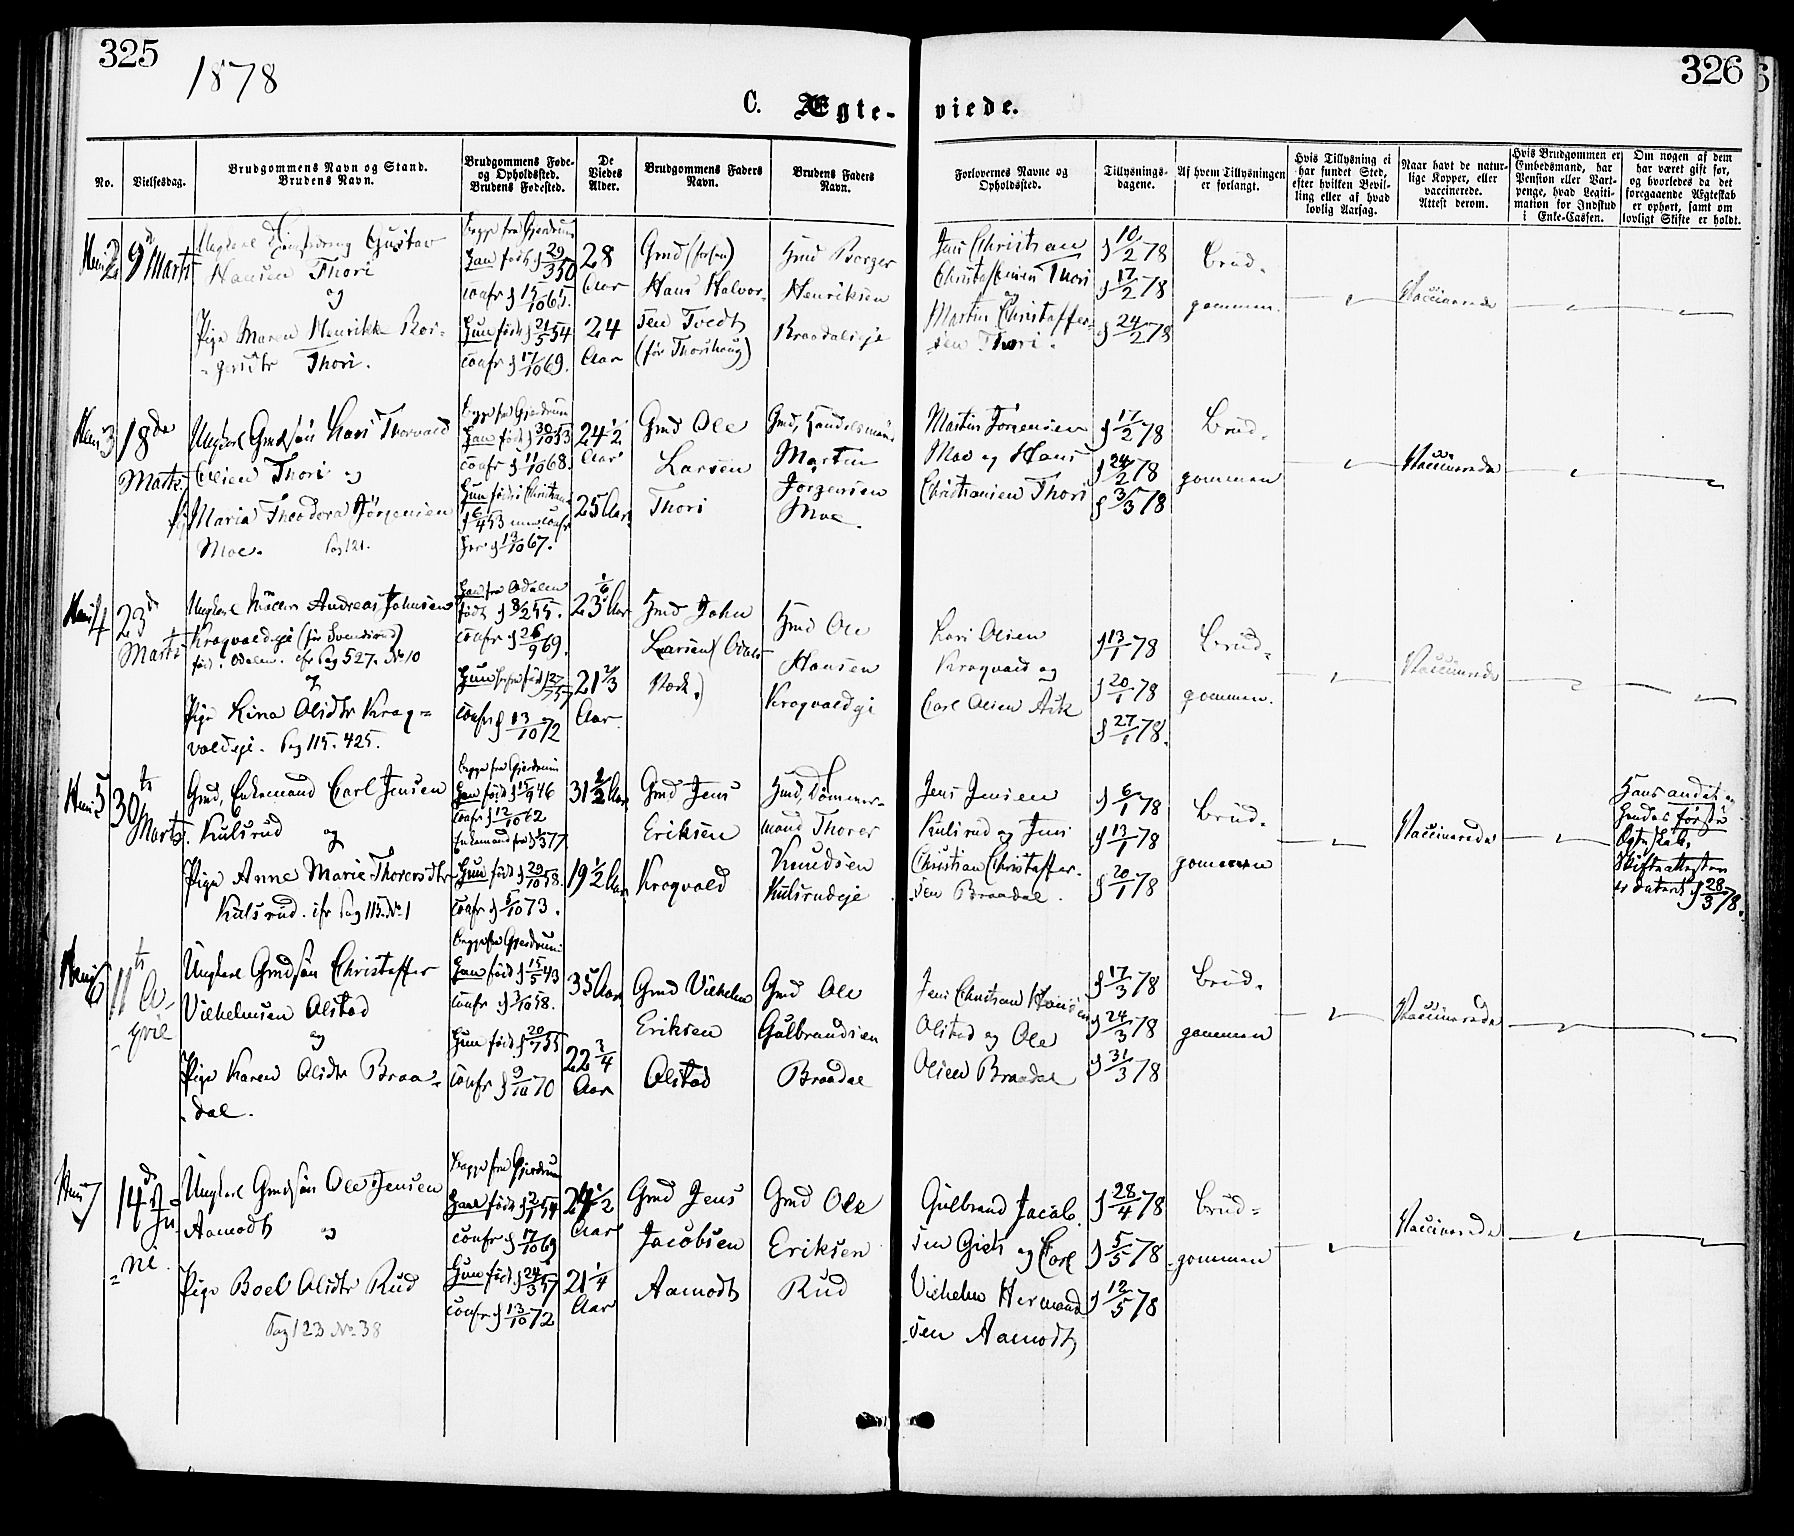 325
1878
C. Ægte-
viede.
326
No.
Vielsesdag.
Brudgommens Navn og Stand.
Brudens Navn.
Brudgommens Føde-
og Opholdssted.
Brudens Fødested.
De
Viedes
Alder.
Brudgommens Faders
Navn.
Brudens Faders
Navn.
Forlovernes Navne og
Opholdssted.
Tillysnings-
dagene.
Af hvem Tillysningen
er forlangt.
Hvis Tillysning ei
har fundet Sted,
efter hvilken Bevil-
ling eller af hvad
lovlig Aarsag.
Naar havt de natur-
lige Kopper, eller
vaccinerede.
Attest derom.
Hvis Brudgommen er
Embedsmand, har
Pension eller Vart-
penge, hvad Legiti-
mation for Indskud
i Enke-Cassen.
Om nogen af dem
har været gift før,
og hvorledes da det
foregaaende Ægteskab
er ophørt, samt om
lovligt Skifte er holdt.
2
9de Marts
Ungkarl Gustav
Hansen Thori
og
Pige Maren Henrikke Bor-
gersdtr Thori.
Begge fra Gjerdrum
Han født 29/3 50
Confr 15/10 65.
Hun født 21/5 54
Confr 17/10 69.
28
Aar
24
Aar
Gmd
Hans Halvor-
sen Tvedt
(før Thorihaug)
Hmd Borger
Henriksen
Braadaleje
Jens Christian
Christoffersen Thori
Martin Christoffer-
sen Thori.
10/2 78
17/2 78
24/2 78
Brud-
gommen.
Vaccinerede
3
18de
Marts
Ungkarl Gmdsøn Lars Thorvald
Olsen Thori og
Pige Maria Theodora Jørgensen
Moe. Pag 121.
Begge fra Gjerdrum
Han født 30/10 53
Confr 11/10 68.
Hun født i Christiania
6/4 53 men Confr
her 13/10 67.
24 1/2
Aar
25 Aar
Gmd Ole
Larsen
Thori
Gmd, Handelsmand
Martin
Jørgensen
Moe.
Martin Jørgensen
Moe og Hans
Christiansen Thori
17/2 78
24/2 78
3/3 78
Brud-
gommen
Vaccinerede
4
23de
Marts
Ungkarl Andreas Johnsen
Krogvoldeje (før Svendsrud)
født i Odalen. cfr Pag 527. No 10
og
Pige Lina Olsdtr Krog-
voldeje. Pag 115. 425.
Han fra Odalen
født 8/2 55.
Confr 26/9 69.
Confr 13/10 72
23 1/6 Aar
21 2/3
Aar
Hmd John
Larsen (Odals
Hmd Ole
Hansen
Krogvoldeje
Lars Olsen
Krogvold og
Carl Olsen Ask
13/1 78
20/1 78
27/1 78.
Brud-
gommen.
Vaccinerede
5
30te
Marts
Gmd, Enkemand Carl Jensen
Kulsrud og
Pige Anne Marie Thorersdtr
Kulsrud. cfr Pag 115. No 1
Begge fra Gjerdrum
Han født 15/9 46
Confr 12/10 62
Hun født 20/10 58.
Confr 5/10 73.
31 1/2 Aar
19 1/2 Aar
Gmd Jens
Eriksen
Krogvold
Hmd, Tømmer-
mand Thorer
Knudsen
Kulsrudeje
Jens Jensen
Kulsrud og Jens
Christian Christoffer-
sen Braadal.
6/1 78
13/1 78
20/1 78
Brud-
gommen
Vaccinerede
Hans andet og
hendes første
Ægteskab.
Skifteattesten
er dateret 28/3 78.
6
11te A-
pril
Ungkarl Gmdsøn Christoffer
Vilhelmsen Olstad
og
Pige Karen Olsdtr Braa-
dal.
Begge fra Gjerdrum
Han født 15/5 43
Confr 3/10 58.
Hun født 20/7 55
Confr 9/10 70
35 Aar
22 3/4
Aar
Gmd Vilhelm
Eriksen
Olstad
Gmd Ole
Gulbrandsen
Braadal
Jens Christian Hansen
Olstad og Ole
Olsen Braadal
17/3 78
24/3 78
31/3 78
Brud-
gommen
Vaccinerede
7
14de Ju-
ni
Ungkarl Gmdsøn Ole Jensen
Aamodt og
Pige Boel Olsdtr Rud
Pag 123 No 38
Begge fra Gjerdrum
Han født 2/1 54
Confr 17/10 69
Hun født 24/3 57
Confr 13/10 72
24 1/2
Aar
21 1/4
Aar
Gmd Jens
Jacobsen
Aamodt
Gmd Ole
Eriksen
Rud
Gulbrand Jacob-
sen og Carl
Vilhelm Hermand-
sen Aamodt
28/4 78
5/5 78
12/5 78
Brud-
gommen
Vaccinerede